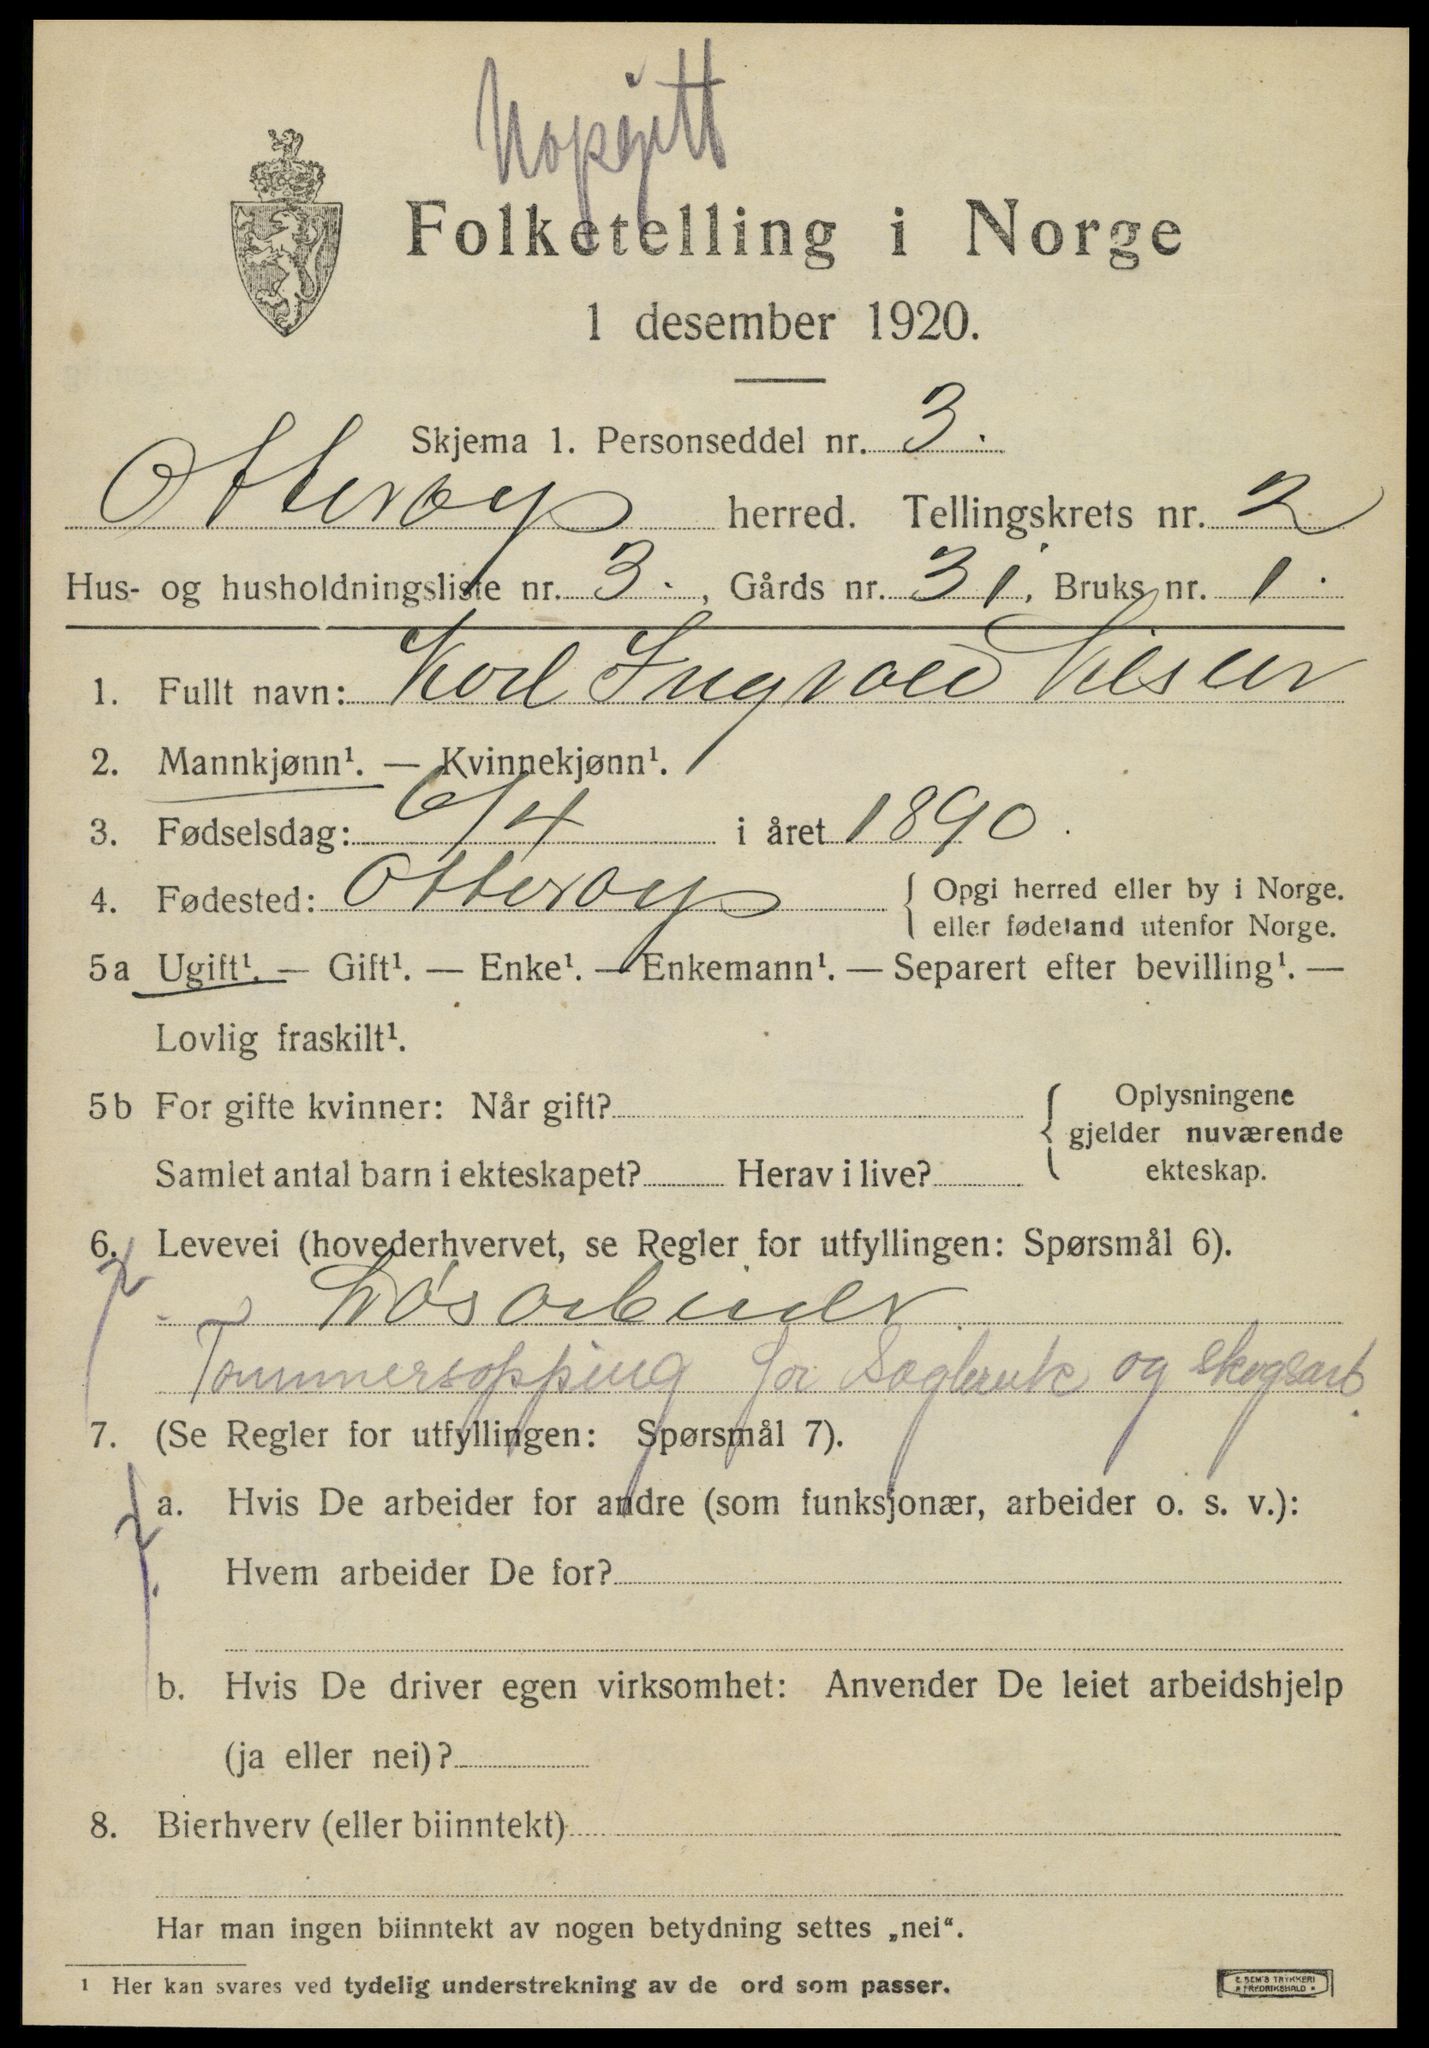 Uopgjitt
Folketelling i Norge
1 desember 1920.
Skjema 1. Personseddel nr. 3.
Otterøy herred. Tellingskrets nr. 2
Hus- og husholdningsliste nr. 3., Gårds nr. 31, Bruks nr. 1.
1. Fullt navn: Karl Ingvald
2. Mannkjønn¹. — Kvinnekjønn¹.
3. Fødselsdag: 6/4 i året 1890.
4. Fødested: Otterøy { Opgi herred eller by i Norge.
eller fødeland utenfor Norge.
5a Ugift¹. — Gift¹. — Enke¹. — Enkemann¹. — Separert efter bevilling¹. —
Lovlig fraskilt¹.
5b For gifte kvinner: Når gift? { Oplysningene
gjelder nuværende
Samlet antal barn i ekteskapet? Herav i live? ekteskap.
6. Levevei (hovederhvervet, se Regler for utfyllingen: Spørsmål 6).
Løsarbeider
Tømmersopping for Sagbruk og skogsarb.
7. (Se Regler for utfyllingen: Spørsmål 7).
a. Hvis De arbeider for andre (som funksjonær, arbeider o. s. v.):
Hvem arbeider De for?
b. Hvis De driver egen virksomhet: Anvender De leiet arbeidshjelp
(ja eller nei)?
8. Bierhverv (eller biinntekt)
Har man ingen biinntekt av nogen betydning settes „nei“.
¹ Her kan svares ved tydelig understrekning av de ord som passer.
E. SEM'S TRYKKERI
* FREDRIKSHALD *